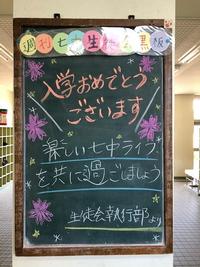 週刊七中生徒会黒板
入学おめでとう
ございます
楽しい七中ライフ
を共に過ごしましょう
生徒会執行部より